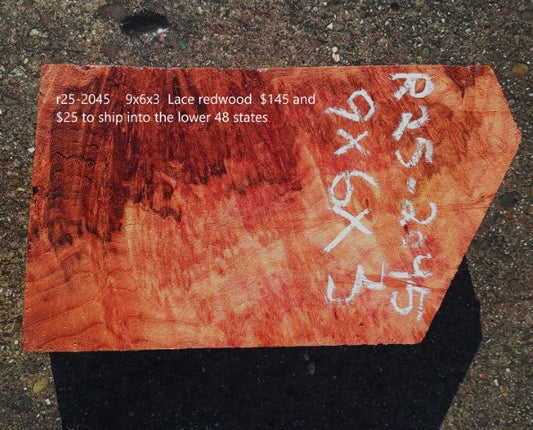 r25-2045 9x6x3 Lace redwood $145 and
$25 to ship into the lower 48 states
R25-2045
9x6x3